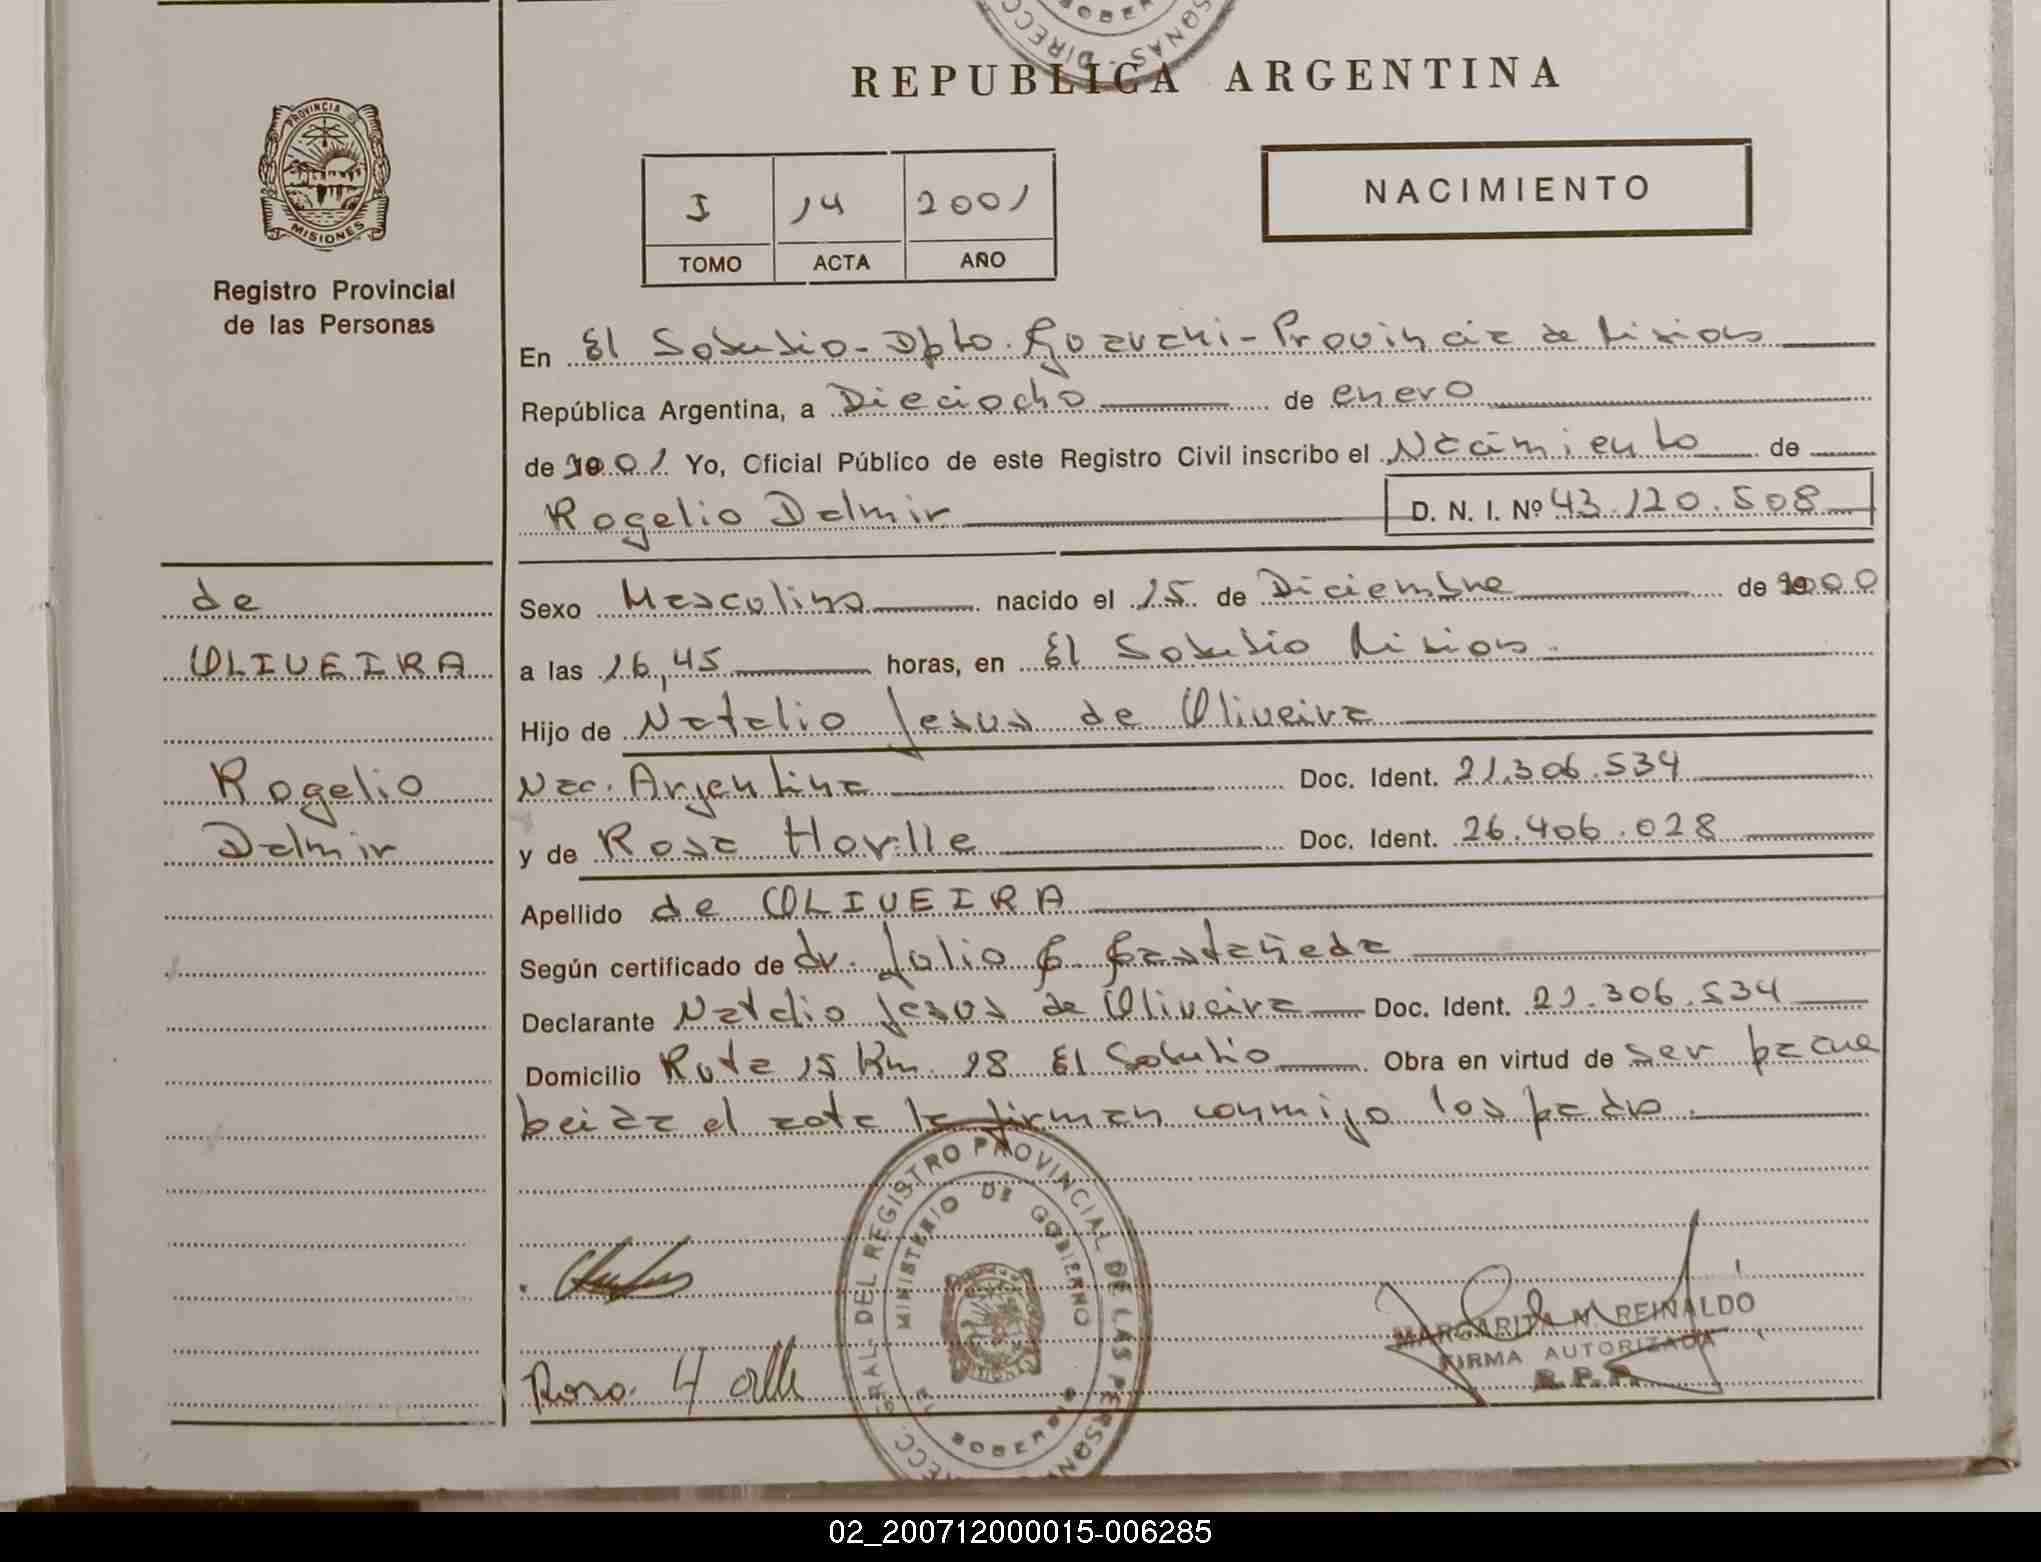 REPUBLICA ARGENTINA
PROVINCIA DE
MISIONES
Registro Provincial
de las Personas
I 14 2001
TOMO ACTA AÑO
NACIMIENTO
En El Soberbio - Dpto. Guarani - Provincia de Misiones
República Argentina, a Dieciocho de enero
de 2001 Yo, Oficial Público de este Registro Civil inscribo el Nacimiento de
Rogelio Dalmir D. N. I. Nº 43.120.508
de
OLIVEIRA
Rogelio
Dalmir
Sexo Masculino nacido el 15 de Diciembre de 2000
a las 16,45 horas, en El Soberbio Misiones.
Hijo de Natalio Jesus de Oliveira
Nac. Argentina Doc. Ident. 21.306.534
y de Rosa Doc. Ident. 26.406.028
Apellido de OLIVEIRA
Según certificado de dr. Julio C. Castañeda
Declarante Natalio Jesus de Oliveira Doc. Ident. 21.306.534
Domicilio Ruta 15 Km. 18 El Soberbio Obra en virtud de ser padre
el acta la firman conmigo los padres.
DIRECC. GRAL. DEL REGISTRO PROVINCIAL DE LAS PERSONAS
MINISTERIO DE GOBIERNO
SOBERBIO
MARGARITA M. REINALDO
FIRMA AUTORIZADA
R. P. P.
Rosa
02_200712000015-006285